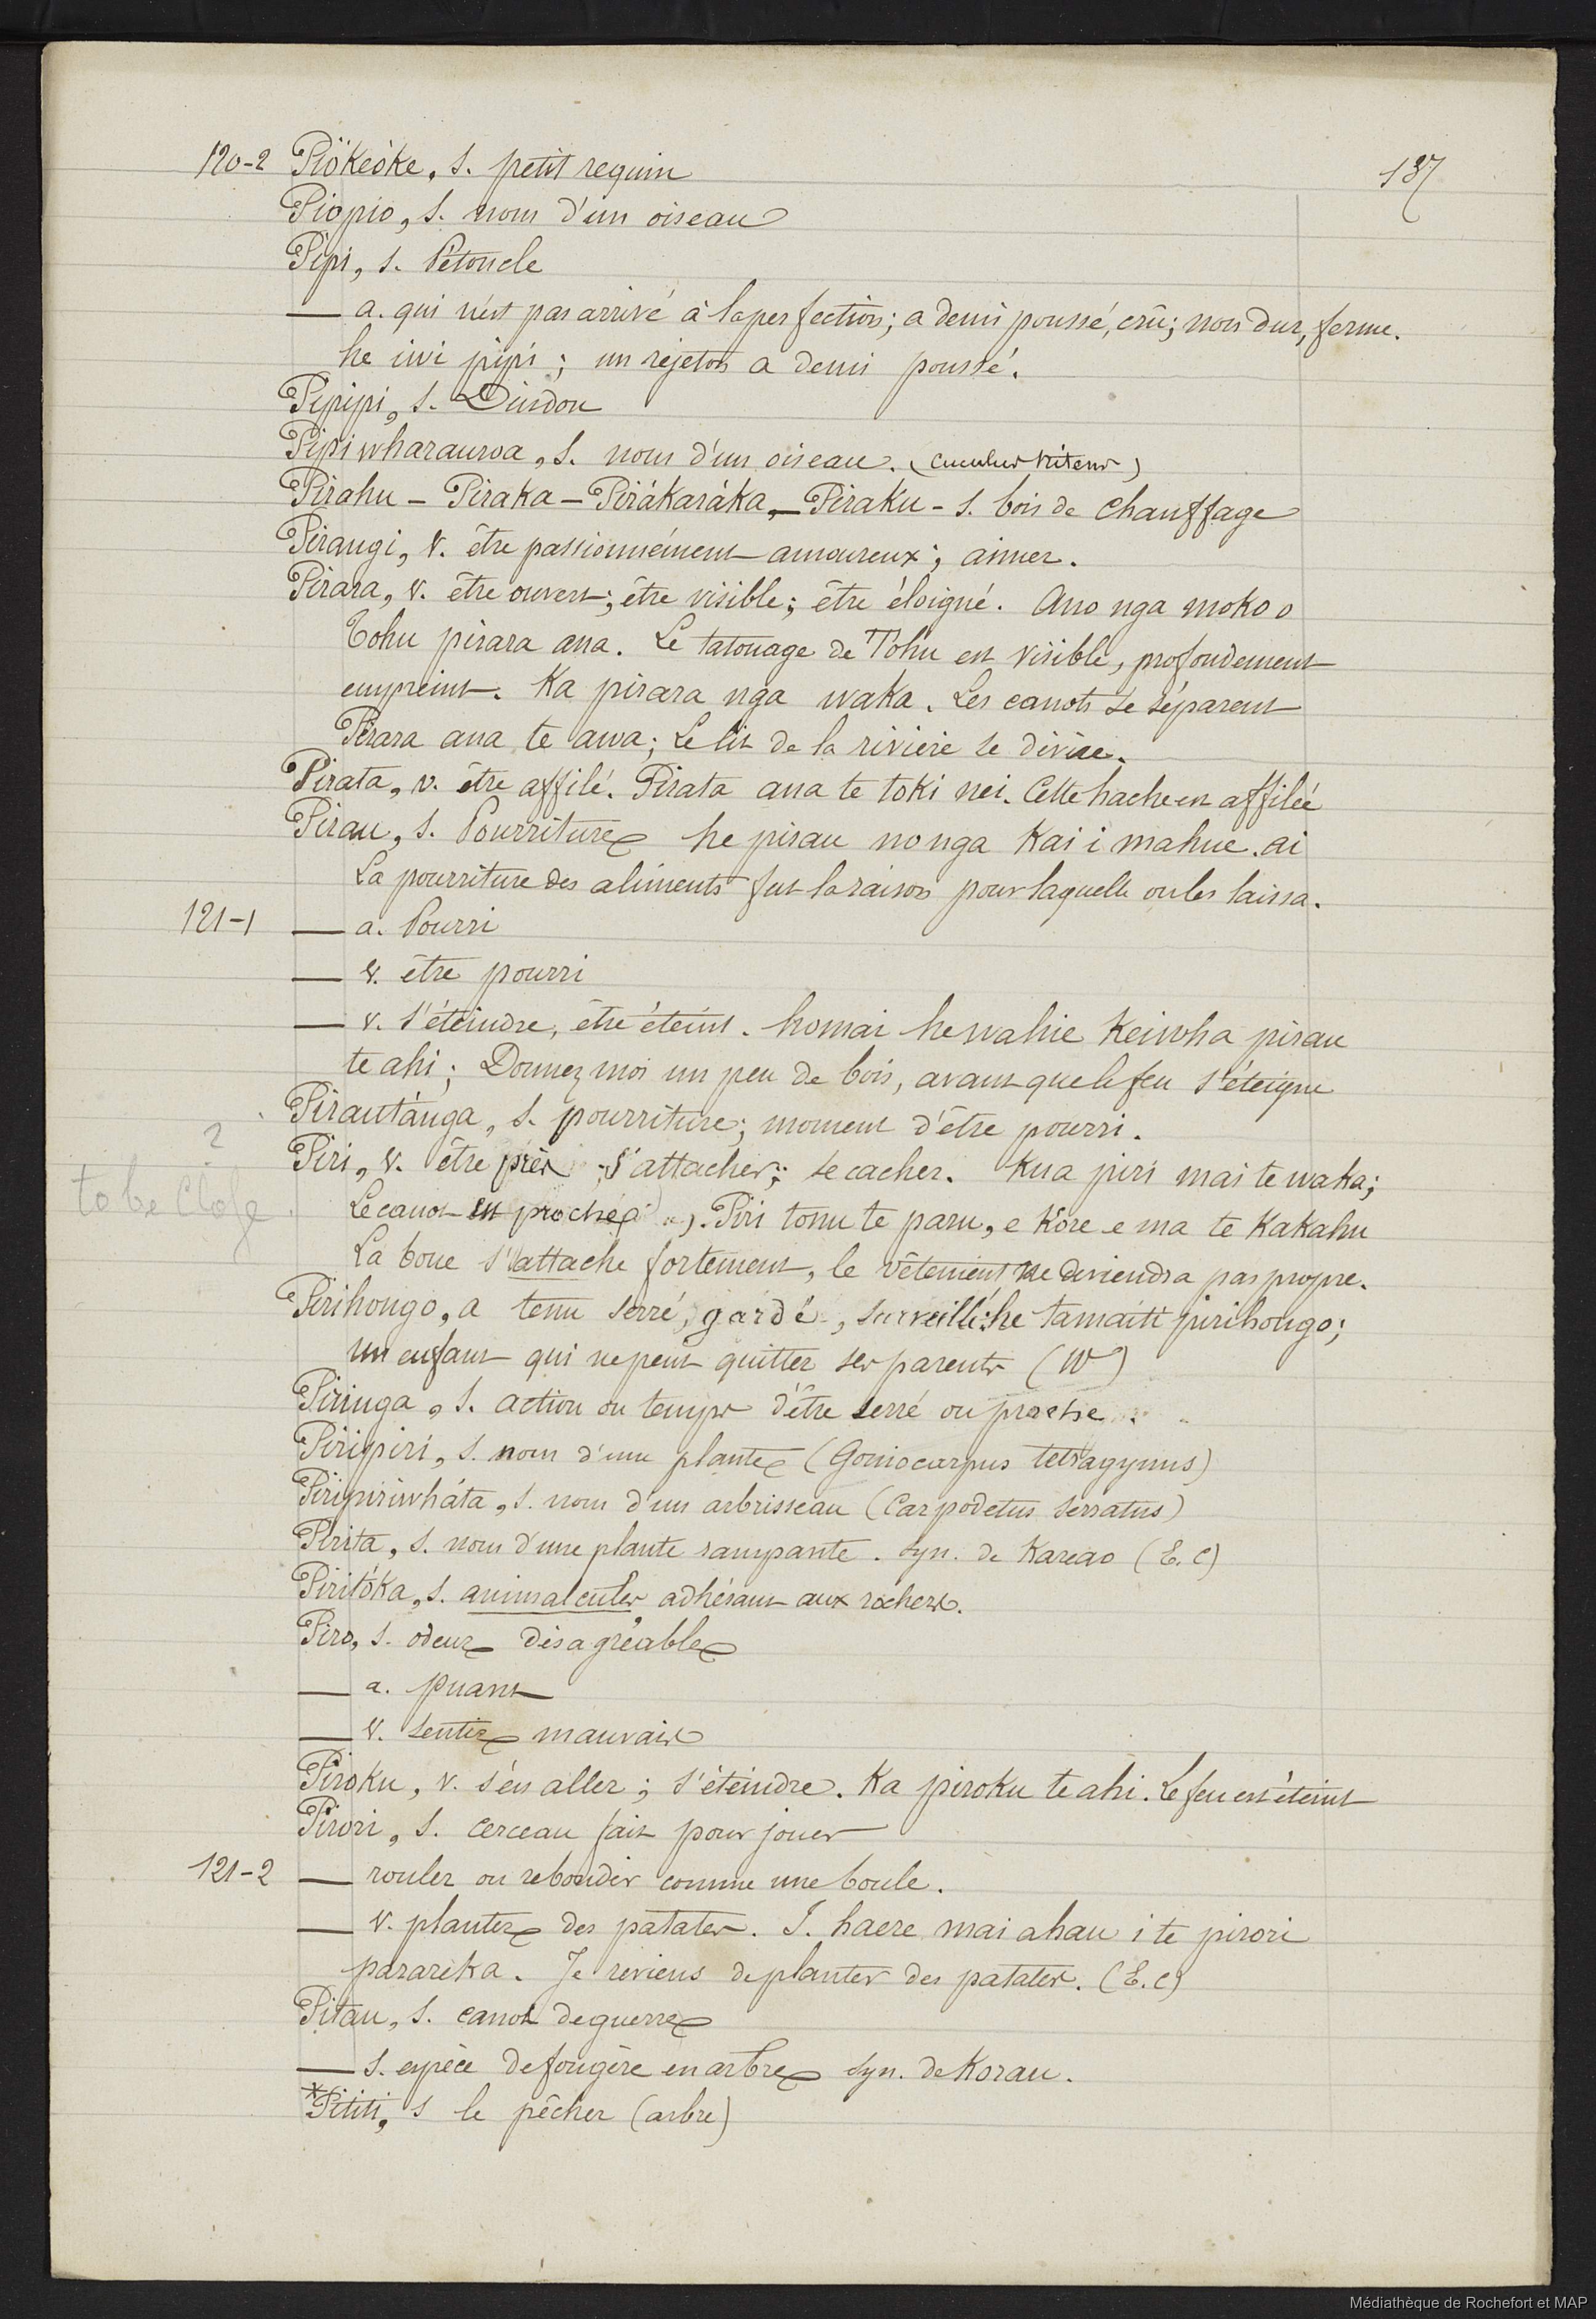 120-2 Piŏkeŏke, s. petit requin
137
Piopio, s. nom d'un oiseau
Pipi, s. Pétoncle
— a. qui n'est pas arrivé à la perfection; a demi poussé, crû; non dur, ferme.
he iwi pipi; un rejeton a demi poussé.
Pipipi, s. Dindon
Pipiwharauroa, s. nom d'un oiseau. (cuculus nitens)
Pirahu – Piraka – Pirákaráka, – Piraku – s. bois de chauffage
Pirangi, v. être passionnément amoureux; aimer.
Pirara, v. être ouvert; être visible; être éloigné. Ano nga moko o
Tohu pirara ana. Le tatouage de Tohu est visible, profondement
empreint. Ka pirara nga waka. Les canots se séparent
Pirara ana te awa; Le lit de la rivière se divise.
Pirata, v. être affilé. Pirata ana te toki nei. Cette hache est affilée
Pirau, s. Pourriture he pirau no nga Kai i mahue. ai
La pourriture des aliments fut la raison pour laquelle on les laissa.
121-1 — a. Pourri
— v. être pourri
— v. s'éteindre, être éteint. homai he wahie Keiwha pirau
te ahi; Donnez moi un peu de bois, avant que le feu s'éteigne
Pirautánga, s. pourriture; moment d'être pourri.
?
Piri, v. être près ; s'attacher; se cacher. Kua piri mai te waka;
to be close
Le canot est proche . Piri tonu te paru, e Kore e ma te Kakahu
La boue s'attache fortement, le vêtement ne deviendra pas propre.
Pirihongo, a tenu serré, gardé, surveillé: he tamaiti pirihongo;
un enfant qui ne peut quitter ses parents (W)
Piringa, s. action ou temps d'être serré ou proche
Piripiri, s. nom d'une plante (Goniocarpus tetragynus)
Piripiriwháta, s. nom d'un arbrisseau (Carpodetus serratus)
Pirita, s. nom d'une plante rampante. syn. de Kareao (E. C)
Piritóka, s. animalcules adhérant aux rochers.
Piro, s. odeur désagréable
— a. puant
— v. sentir mauvais
Piroku, v. s'en aller; s'éteindre. Ka piroku te ahi. Le feu est éteint
Pirori, s. cerceau fait pour jouer
121-2 — rouler ou rebondir comme une boule.
— v. planter des patates. I. haere mai ahau i te pirori
parareka. Je reviens de planter des patates. (E. C)
Pitau, s. canot de guerre
— s. espèce de fougère en arbre syn. de Korau.
*Pititi, s le pêcher (arbre)
Médiathèque de Rochefort et MAP